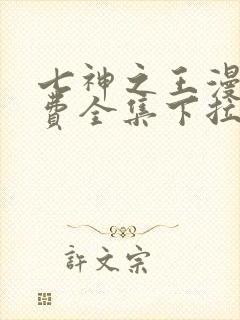 七神之王漫
费全集下拉
許文宗